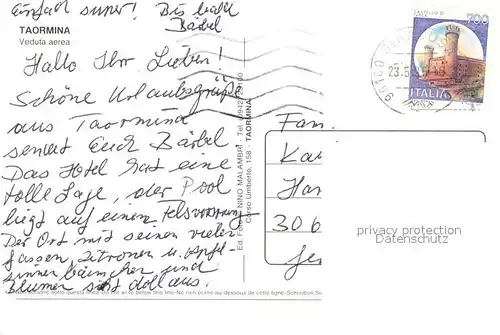 einfach super! Bis bald
Bärbel
TAORMINA
Veduta aerea
Hallo Ihr Lieben!
Schöne Urlaubsgrüße
aus Taormina
sendet Euch Bärbel
Das Hotel hat eine
tolle Lage, der Pool
liegt auf einem Felsvorsprung
Der Ort mit seinen vielen
Gassen, Zitronen u. Apfel-
sinnenbäumchen und
Blumen sieht doll aus.
Ed. Foto NINO MALAMBRI - Tel.
Corso Umberto, 158 - TAORMINA
700
ITALIA
23.5
Fam.
Ka
Ha
306
Je
privacy protection
Datenschutz